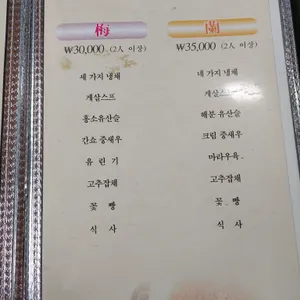 梅
₩30,000 (2人 이상)
세 가지 냉채
게살스프
홍소유산슬
간쇼 중새우
유 린 기
고추잡채
꽃 빵
식 사
蘭
₩35,000 (2人 이상)
네 가지 냉채
게살스프
해분 유산슬
크림 중새우
마라우육
고추잡채
꽃 빵
식 사